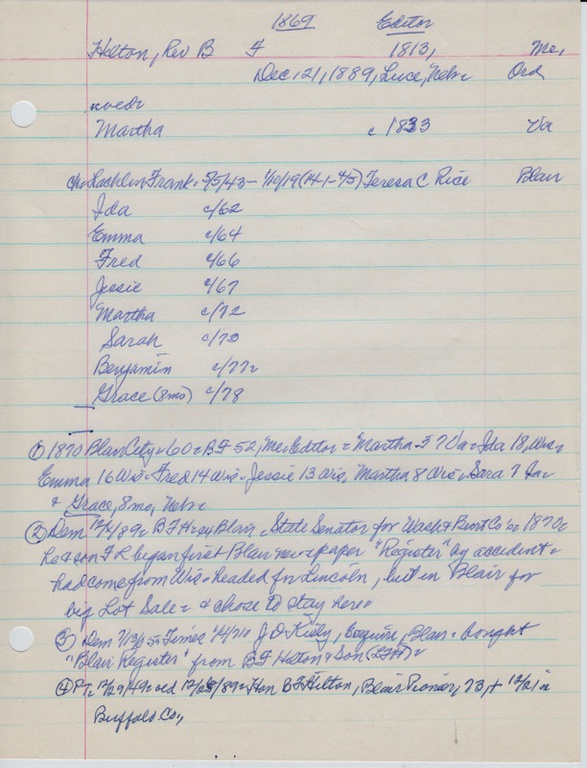 1869 Editor
Hilton, Rev B F 1813, Me,
Dec 21, 1889, Luce, Nebr Ord
Martha c 1833 Va
Lachlin Frank = 5/5/43 - 1/10/19 (14-1-4/5) Teresa C Rice Blair
Ida c/62
Emma c/64
Fred c/66
Jessie c/67
Martha c/72
Sarah c/73
Benjamin c/77
Grace (8 mo) c/78
① 1870 Blair City = 60 = B F 52, Me Editor = Martha 37 Va = Ida 18, Wis =
Emma 16 Wis = Fred 14 Wis = Jessie 13 Wis, Martha 8 = 7
& Grace, 8 mo, Nebr =
② Dem 12/ /89 = B F H = Blair = State Senator for Wash & Burt Co's = 1870 =
he & son F R began first Blair newspaper "Register" by accident =
had come from Wis = headed for Lincoln, but in Blair for
big Lot Sale = & chose to stay here =
③ Dem 7/13/ = Times 1/4/71 = J D Esquire, Blair = bought
"Blair Register" from B F Hilton & Son =
④ PT = 12/29/49 = 12/ /89 = Hon B F Hilton, Blair Pioneer, 73, + 12/21 in
Buffalo Co.,